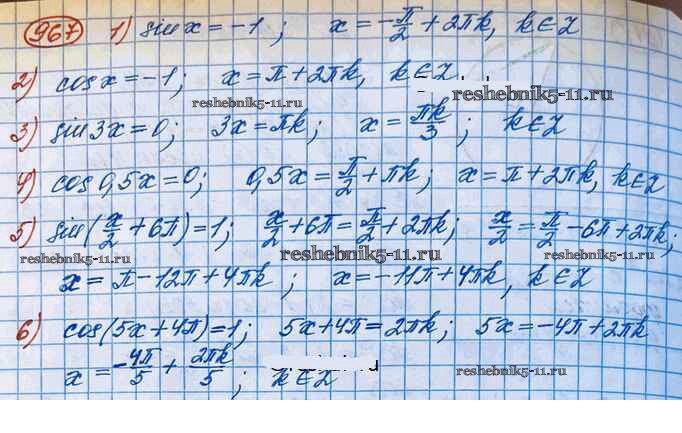 967 1) sin x = -1; x = -π/2 + 2πk, k∈Z
2) cos x = -1; x = π + 2πk, k∈Z
reshebnik5-11.ru reshebnik5-11.ru
3) sin 3x = 0; 3x = πk; x = πk/3; k∈Z
4) cos 0,5x = 0; 0,5x = π/2 + πk; x = π + 2πk, k∈Z
5) sin(x/2 + 6π) = 1; x/2 + 6π = π/2 + 2πk; x/2 = π/2 - 6π + 2πk;
reshebnik5-11.ru reshebnik5-11.ru reshebnik5-11.ru
x = π - 12π + 4πk; x = -11π + 4πk, k∈Z
6) cos(5x + 4π) = 1; 5x + 4π = 2πk; 5x = -4π + 2πk
x = -4π/5 + 2πk/5; k∈Z
reshebnik5-11.ru